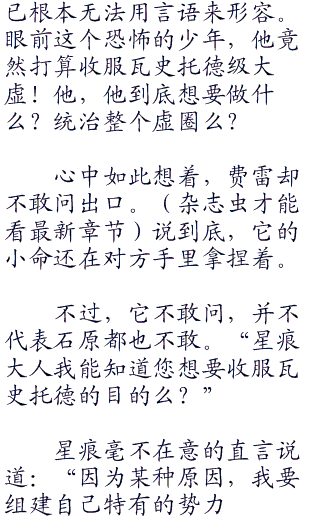 已根本无法用言语来形容。
眼前这个恐怖的少年，他竟
然打算收服瓦史托德级大
虚！他，他到底想要做什
么？统治整个虚圈么？
心中如此想着，费雷却
不敢问出口。（杂志虫才能
看最新章节）说到底，它的
小命还在对方手里拿捏着。
不过，它不敢问，并不
代表石原都也不敢。“星痕
大人我能知道您想要收服瓦
史托德的目的么？”
星痕毫不在意的直言说
道：“因为某种原因，我要
组建自己特有的势力